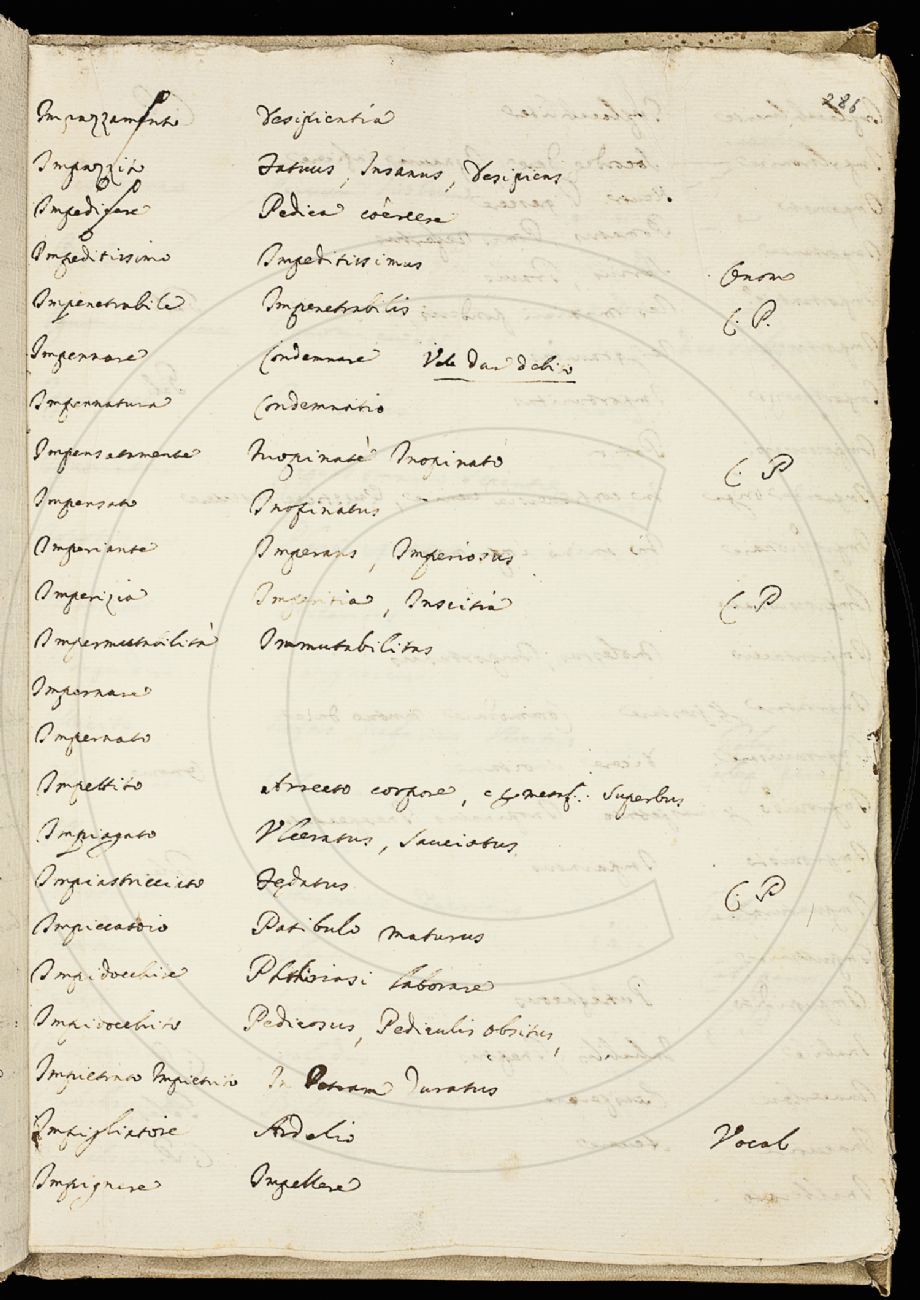 286
Impazzamento Desipientia
Impazzito Fatuus, Insanus, Desipiens
Impedicare Pedica coërcere
Impeditissimo Impeditissimus Onom
Impenetrabile Impenetrabilis C. P.
Impennare Condemnare Vale dar debito
Impennatura Condemnatio
Impensatamente Inopinatè Inopinato C. P
Impensato Inopinatus
Imperiante Imperans, Imperiosus
Imperizia Imperitia, Inscitia C. P
Impermutabilità Immutabilitas
Impernare
Impernato
Impettito Arrecto corpore, e metaf. Superbus
Impiagato Ulceratus, Sauciatus
Impiastricciato Fędatus C. P
Impiccatoio Patibulo maturus
Impidocchire Phthiriasi laborare
Impidocchito Pedicosus, Pediculis obsitus,
Impietrato Impietrito In Petram Duratus
Impigliatore Ardelio Vocab
Impignere Impellere